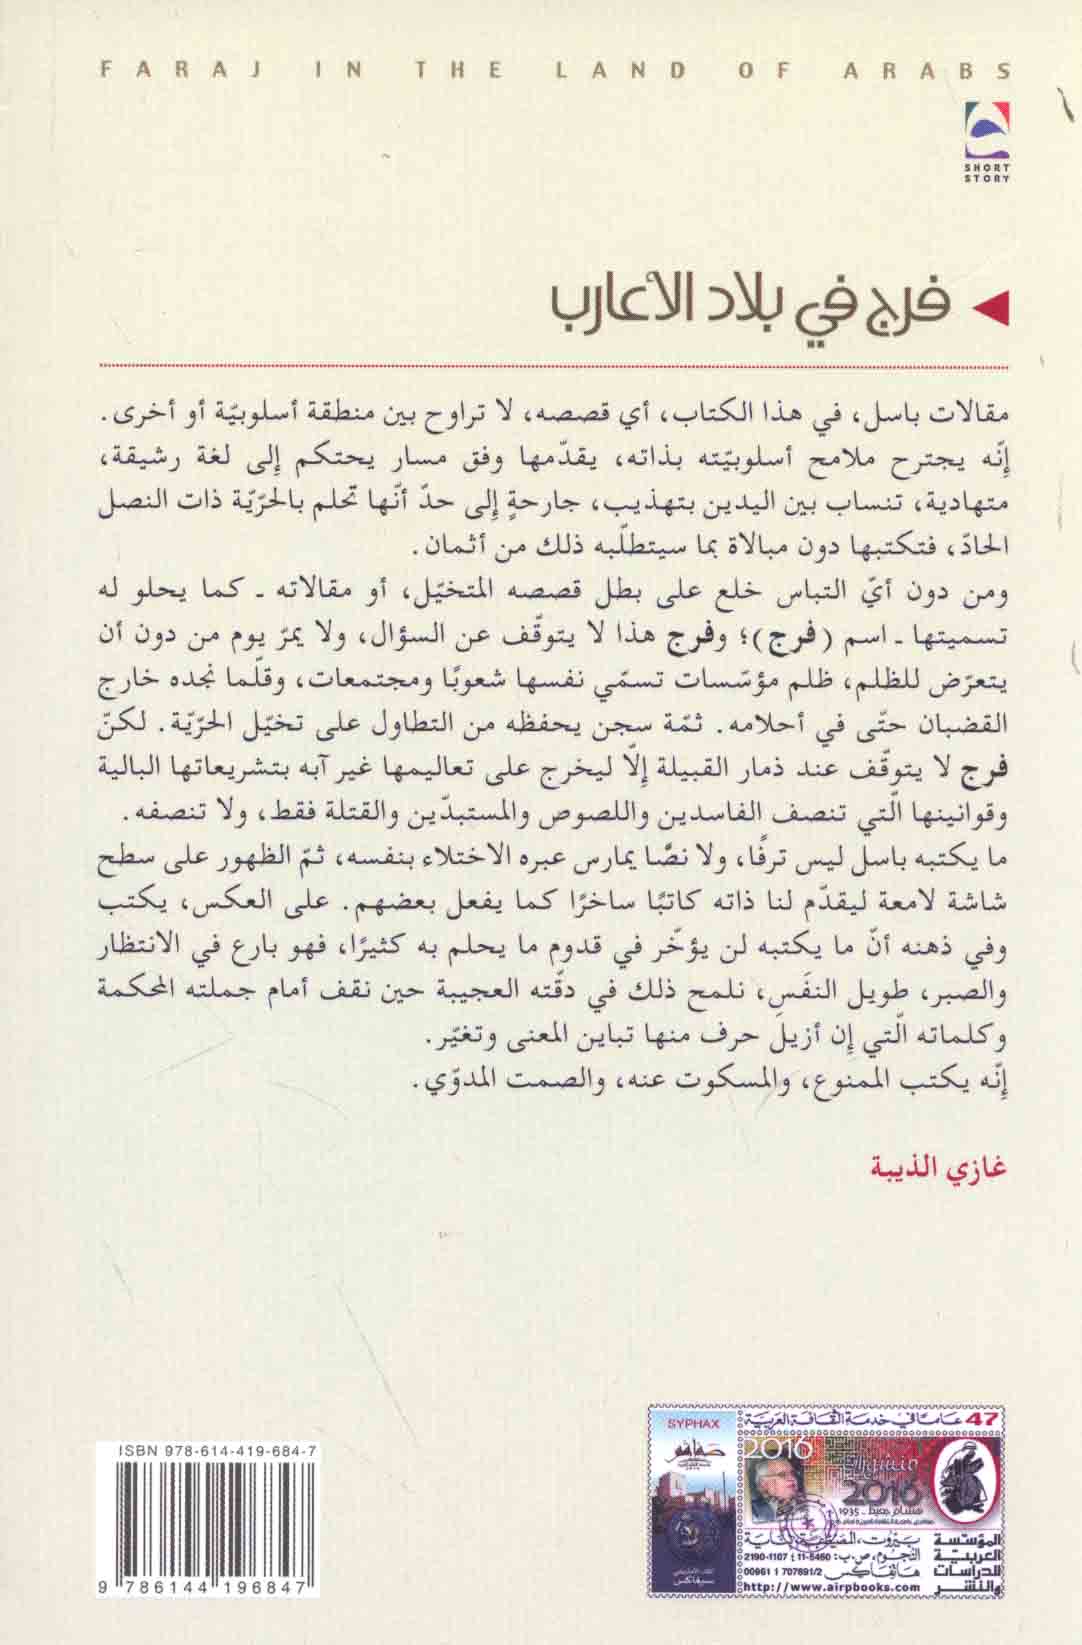 FARAJ IN THE LAND OF ARABS
SHORT
STORY
فرج في بلاد الأعارب
مقالات باسل، في هذا الكتاب، أي قصصه، لا تراوح بين منطقة أسلوبيّة أو أخرى.
إنّه يجترح ملامح أسلوبيّته بذاته، يقدّمها وفق مسار يحتكم إلى لغة رشيقة،
متهادية، تنساب بين اليدين بتهذيب، جارحةٍ إلى حدّ أنّها تحلم بالحرّيّة ذات النصل
الحادّ، فتكتبها دون مبالاة بما سيتطلّبه ذلك من أثمان.
ومن دون أيّ التباس خلع على بطل قصصه المتخيّل، أو مقالاته ـ كما يحلو له
تسميتها ـ اسم (فرج)؛ وفرج هذا لا يتوقّف عن السؤال، ولا يمرّ يوم من دون أن
يتعرّض للظلم، ظلم مؤسّسات تسمّي نفسها شعوبًا ومجتمعات، وقلّما نجده خارج
القضبان حتّى في أحلامه. ثمّة سجن يحفظه من التطاول على تخيّل الحرّيّة. لكنّ
فرج لا يتوقّف عند ذمار القبيلة إلّا ليخرج على تعاليمها غير آبه بتشريعاتها البالية
وقوانينها الّتي تنصف الفاسدين واللصوص والمستبدّين والقتلة فقط، ولا تنصفه.
ما يكتبه باسل ليس ترفًا، ولا نصًّا يمارس عبره الاختلاء بنفسه، ثمّ الظهور على سطح
شاشة لامعة ليقدّم لنا ذاته كاتبًا ساخرًا كما يفعل بعضهم. على العكس، يكتب
وفي ذهنه أنّ ما يكتبه لن يؤخّر في قدوم ما يحلم به كثيرًا، فهو بارع في الانتظار
والصبر، طويل النفَس، نلمح ذلك في دقّته العجيبة حين نقف أمام جملته المحكمة
وكلماته الّتي إن أزيلَ حرف منها تباين المعنى وتغيّر.
إنّه يكتب الممنوع، والمسكوت عنه، والصمت المدوّي.
غازي الذيبة
ISBN 978-614-419-684-7
9 786144 196847
47 عامًا في خدمة الثقافة العربية
SYPHAX
صفاقس
2016
منشورات
2016
هشام جعيط - 1935
المؤسسة
العربية
للدراسات
والنشر
بيروت، الصنايع، بناية
النجوم، ص.ب: 5460-11 ؛ 1107-2190
هاتفاكس 00961 1 707891/2
http://www.airpbooks.com
سيفاكس